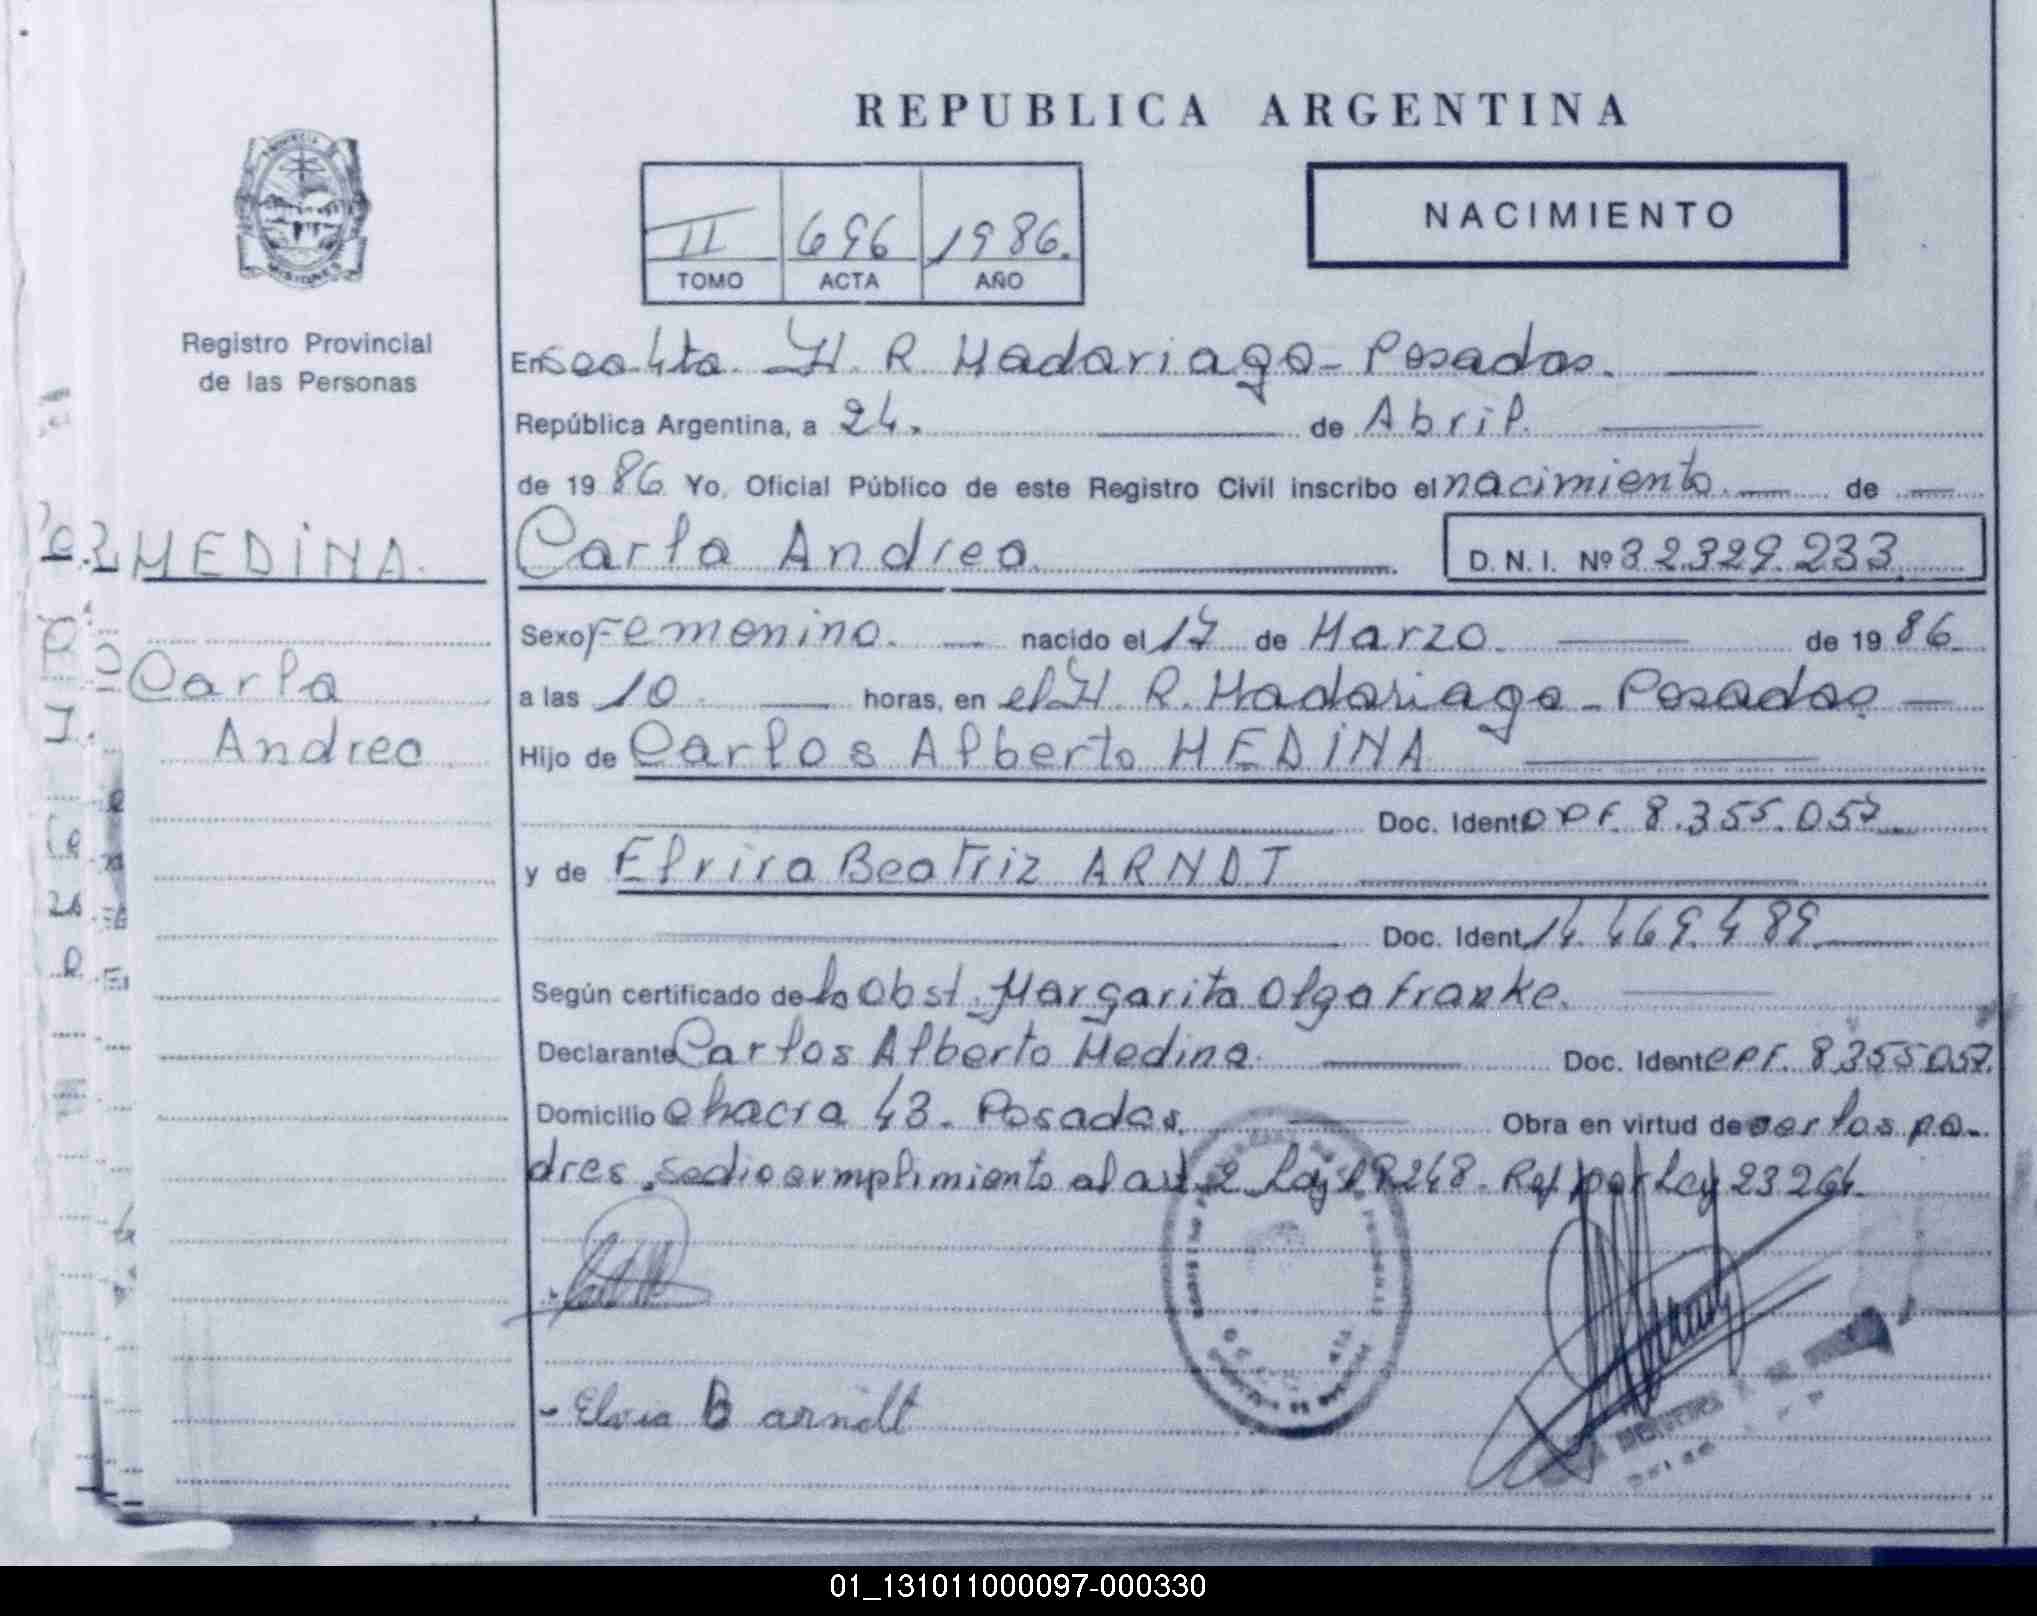 REPUBLICA ARGENTINA
NACIMIENTO
II 696 1986.
TOMO ACTA AÑO
Registro Provincial
de las Personas
MEDINA.
Carla
Andrea
En H. R. Madariaga - Posadas.
República Argentina, a 24. de Abril.
de 1986 Yo, Oficial Público de este Registro Civil inscribo el nacimiento. de
Carla Andrea. D. N. I. Nº 32.329.233
Sexo Femenino. nacido el 17 de Marzo. de 1986.
a las 10. horas, en el H. R. Madariaga - Posadas.
Hijo de Carlos Alberto MEDINA
Doc. Ident. 8.355.057
y de Elvira Beatriz ARNDT
Doc. Ident. 14.469.489
Según certificado de la Obst. Margarita Olga Franke.
Declarante Carlos Alberto Medina. Doc. Ident. 8355057.
Domicilio chacra 43. Posadas. Obra en virtud de ser los pa-
dres. se dio cumplimiento al art 2 Ley 18248. Ref por Ley 23264.
Elvia B arndt
01_131011000097-000330